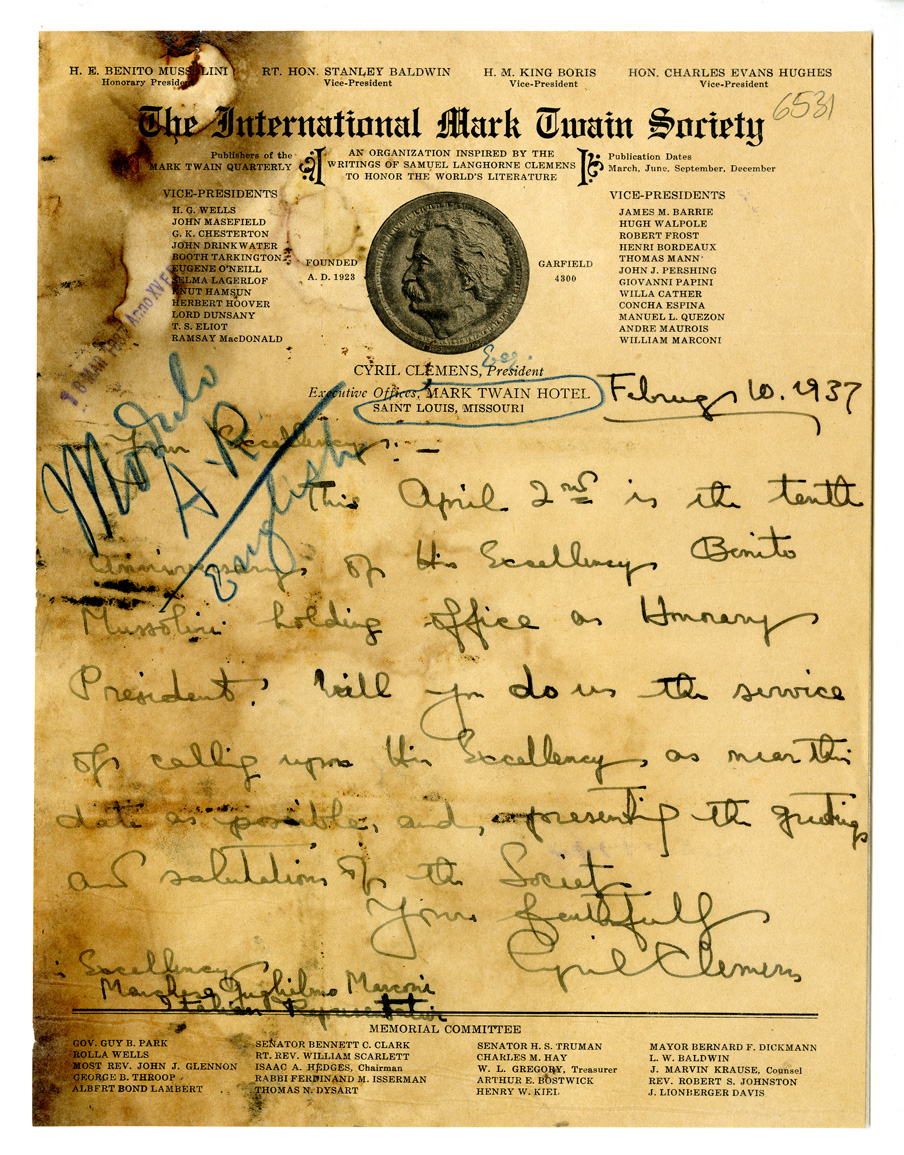 H. E. BENITO MUSSOLINI
Honorary President
RT. HON. STANLEY BALDWIN
Vice-President
H. M. KING BORIS
Vice-President
HON. CHARLES EVANS HUGHES
Vice-President
6531
The International Mark Twain Society
Publishers of the
MARK TWAIN QUARTERLY
AN ORGANIZATION INSPIRED BY THE
WRITINGS OF SAMUEL LANGHORNE CLEMENS
TO HONOR THE WORLD'S LITERATURE
Publication Dates
March, June, September, December
VICE-PRESIDENTS
H. G. WELLS
JOHN MASEFIELD
G. K. CHESTERTON
JOHN DRINKWATER
BOOTH TARKINGTON
EUGENE O'NEILL
SELMA LAGERLOF
KNUT HAMSUN
HERBERT HOOVER
LORD DUNSANY
T. S. ELIOT
RAMSAY MacDONALD
FOUNDED
A. D. 1923
GARFIELD
4300
VICE-PRESIDENTS
JAMES M. BARRIE
HUGH WALPOLE
ROBERT FROST
HENRI BORDEAUX
THOMAS MANN
JOHN J. PERSHING
GIOVANNI PAPINI
WILLA CATHER
CONCHA ESPINA
MANUEL L. QUEZON
ANDRE MAUROIS
WILLIAM MARCONI
18 MAR 1937 Anno XV
CYRIL CLEMENS, President
Executive Offices, MARK TWAIN HOTEL
SAINT LOUIS, MISSOURI
February 10. 1937
Modulo
A-R
English
Your Excellency: -
This April 2nd is the tenth
anniversary of His Excellency Benito
Mussolini holding office as Honorary
President. Will you do us the service
of calling upon His Excellency, as near this
date as possible, and, presenting the greetings
and salutations of the Society
Yours faithfully
Cyril Clemens
Excellency
Marchese Guglielmo Marconi
Italian Representative
MEMORIAL COMMITTEE
GOV. GUY B. PARK
ROLLA WELLS
MOST REV. JOHN J. GLENNON
GEORGE B. THROOP
ALBERT BOND LAMBERT
SENATOR BENNETT C. CLARK
RT. REV. WILLIAM SCARLETT
ISAAC A. HEDGES, Chairman
RABBI FERDINAND M. ISSERMAN
THOMAS N. DYSART
SENATOR H. S. TRUMAN
CHARLES M. HAY
W. L. GREGORY, Treasurer
ARTHUR E. BOSTWICK
HENRY W. KIEL
MAYOR BERNARD F. DICKMANN
L. W. BALDWIN
J. MARVIN KRAUSE, Counsel
REV. ROBERT S. JOHNSTON
J. LIONBERGER DAVIS